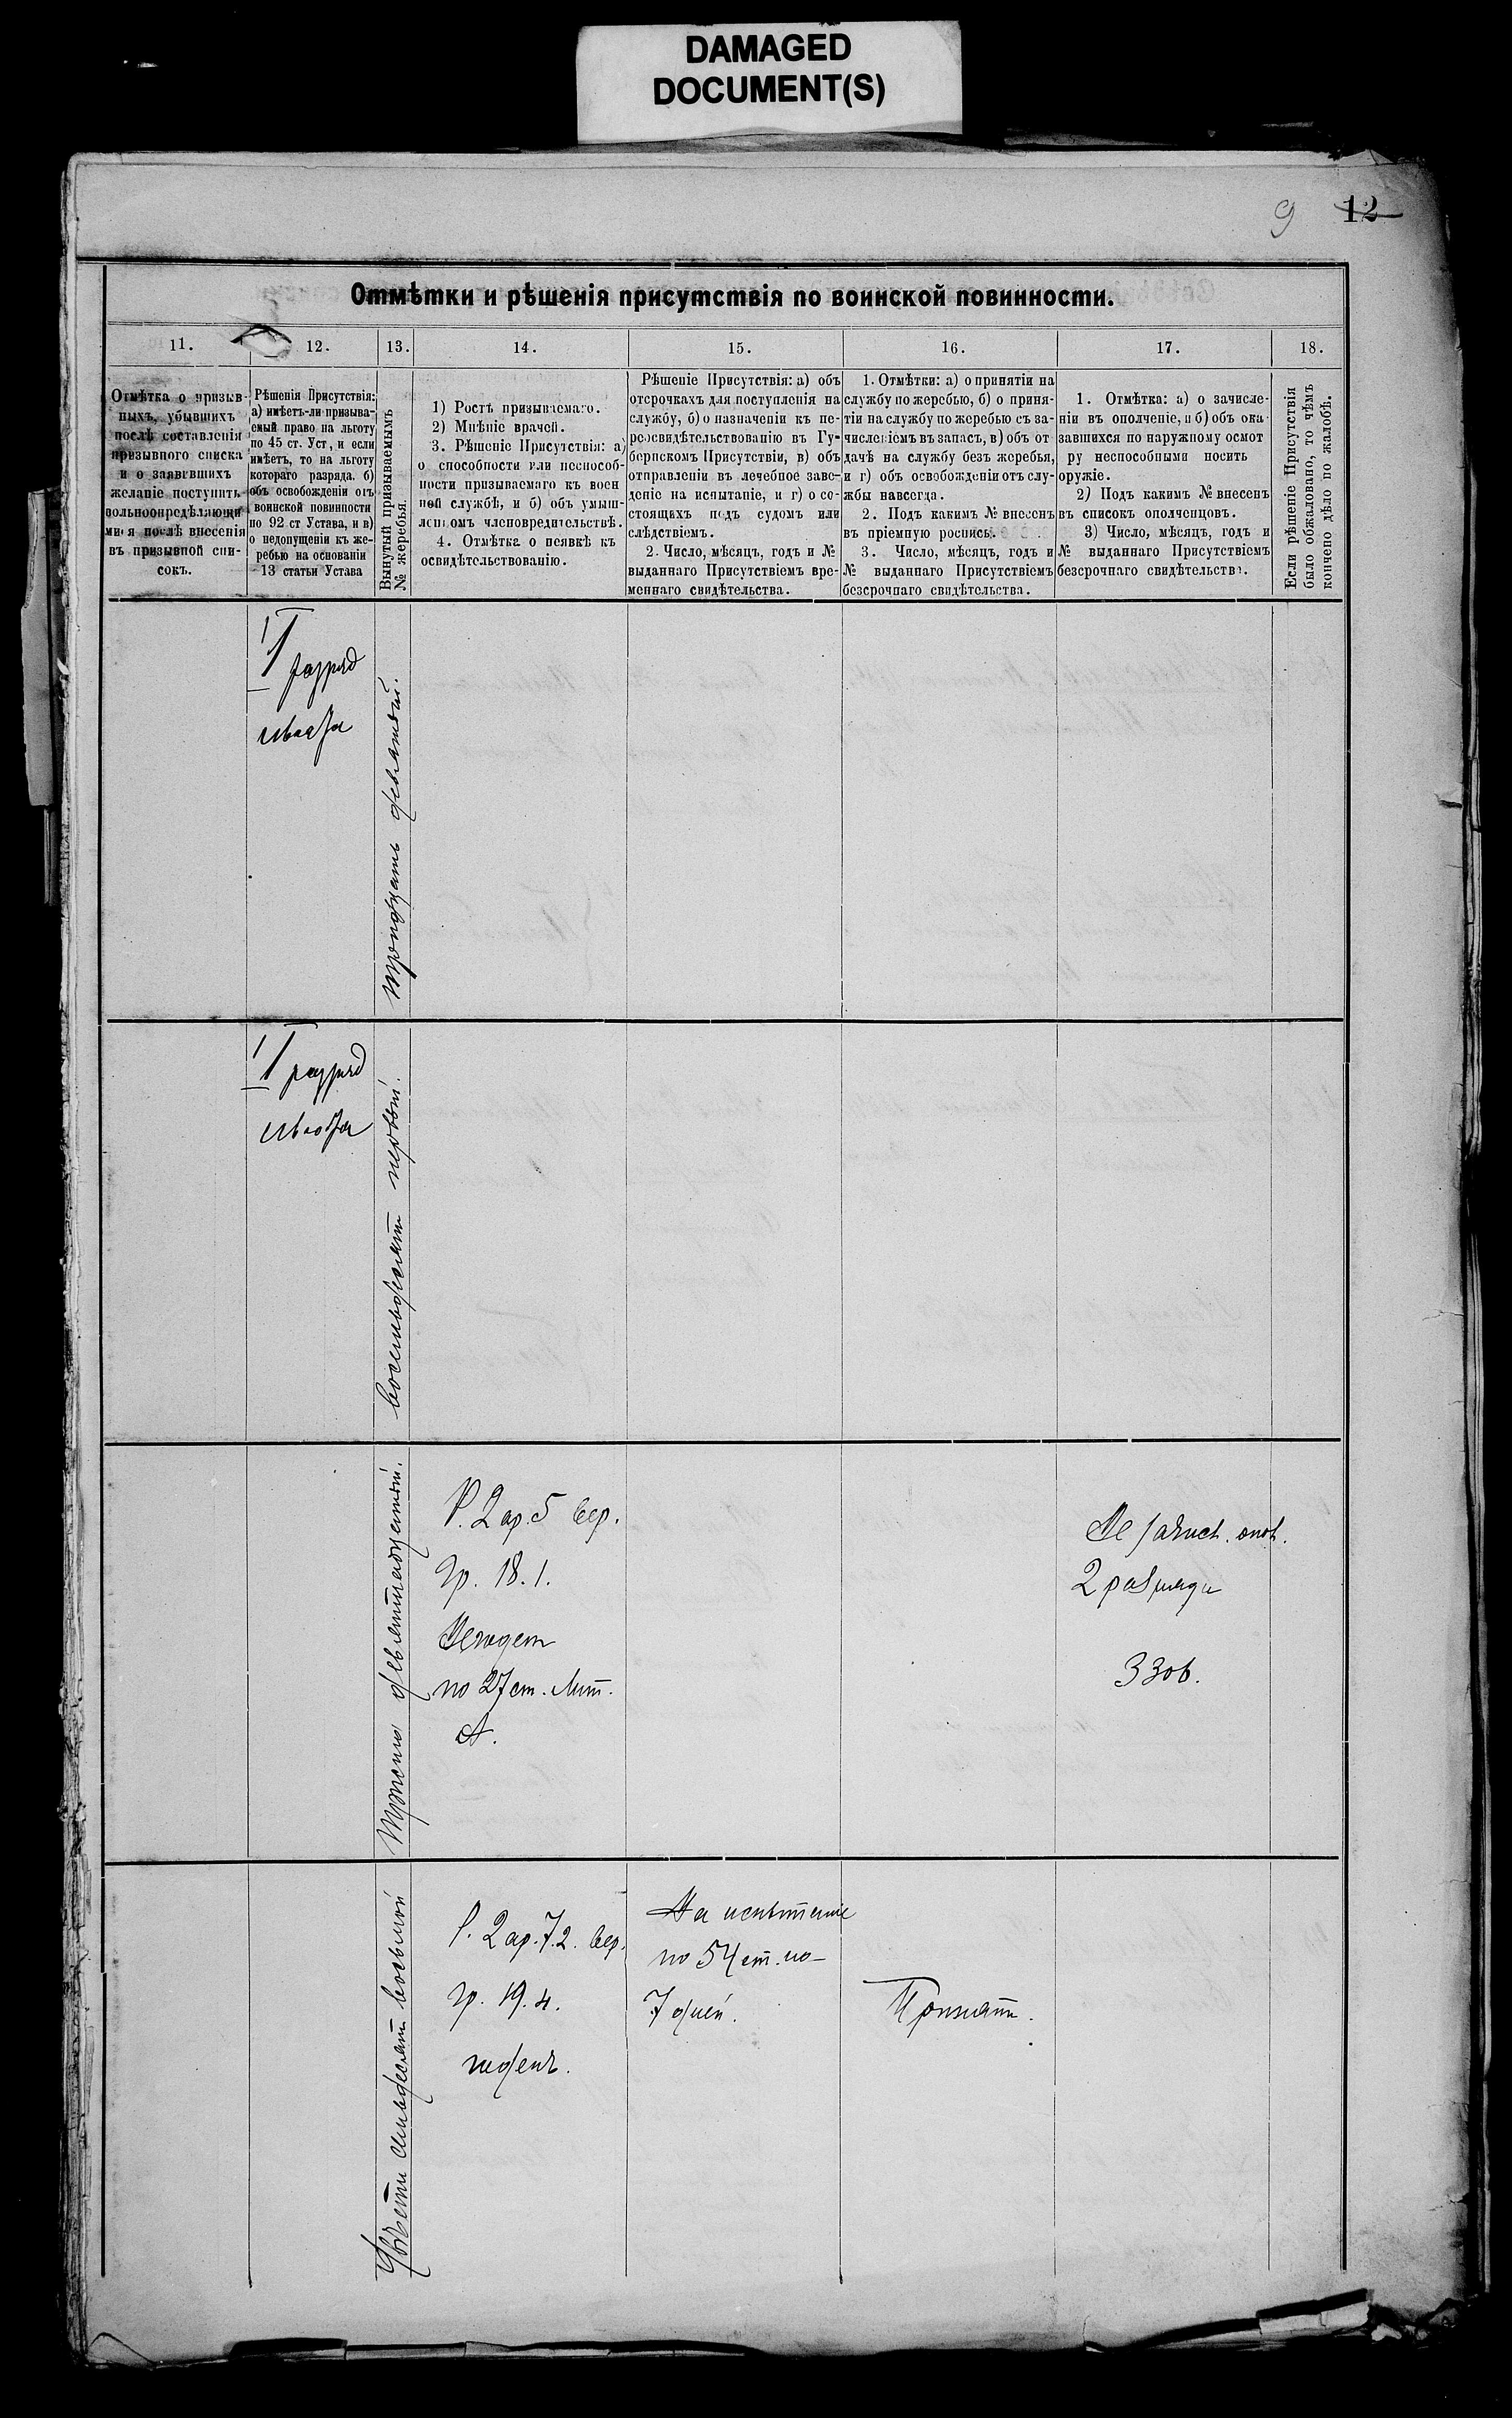 DAMAGED
DOCUMENT(S)
9 12
Отмѣтки и рѣшенія присутствія по воинской повинности.
11. 12. 13. 14. 15. 16. 17. 18.
Отмѣтка о призыв-
ныхъ, убывшихъ
послѣ составленія
призывного списка
и о заявившихъ
желаніе поступить
вольноопредѣляющи
мися послѣ внесенія
въ призывной спи-
сокъ.
Рѣшенія Присутствія:
а) имѣетъ-ли призыва-
емый право на льготу
по 45 ст. Уст, и если
имѣетъ, то на льготу
котораго разряда. б)
объ освобожденіи отъ
воинской повинности
по 92 ст Устава, и в)
о недопущеніи къ же-
ребью на основаніи
13 статьи Устава
Вынутый призываемымъ
№ жеребья.
1) Ростъ призываемаго.
2) Мнѣніе врачей.
3. Рѣшеніе Присутствія: а)
о способности или неспособ-
ности призываемаго къ воен
ной службѣ, и б) объ умыш-
ленномъ членовредительствѣ.
4. Отмѣтка о неявкѣ къ
освидѣтельствованію.
Рѣшеніе Присутствія: а) объ
отсрочкахъ для поступленія на
службу, б) о назначеніи къ пе-
реосвидѣтельствованію въ Гу-
бернскомъ Присутствіи, в) объ
отправленіи въ лечебное заве-
деніе на испытаніе, и г) о со-
стоящихъ подъ судомъ или
слѣдствіемъ.
2. Число, мѣсяцъ, годъ и №
выданнаго Присутствіемъ вре-
меннаго свидѣтельства.
1. Отмѣтки: а) о принятіи на
службу по жеребью, б) о приня-
тіи на службу по жеребью съ за-
численіемъ въ запасъ, в) объ от
дачѣ на службу безъ жеребья,
и г) объ освобожденіи отъ слу-
жбы навсегда.
2. Подъ какимъ № внесенъ
въ пріемную роспись.
3. Число, мѣсяцъ, годъ и
№ выданнаго Присутствіемъ
безсрочнаго свидѣтельства.
1. Отмѣтка: а) о зачисле-
ніи въ ополченіе, и б) объ ока
завшихся по наружному осмот
ру неспособными носить
оружіе.
2) Подъ какимъ № внесенъ
въ списокъ ополченцовъ.
3) Число, мѣсяцъ, годъ и
№ выданнаго Присутствіемъ
безсрочнаго свидѣтельства.
Если рѣшеніе Присутствія
было обжаловано, то чѣмъ
кончено дѣло по жалобѣ.
I разряд
тридцать девятый.
I разряд
восемьдесят первый.
Триста девятнадцатый.
Р. 2 ар. 5 вер.
гр. 18. 1.
Негоден
по 27 ст. Лит.
А.
2 разряда
Двѣсти семьдесят восьмой
Р. 2 ар. 7. 2. вер.
гр. 19. 4.
годенъ.
На испытаніе
по 54 ст. по
7 дней.
Принят.